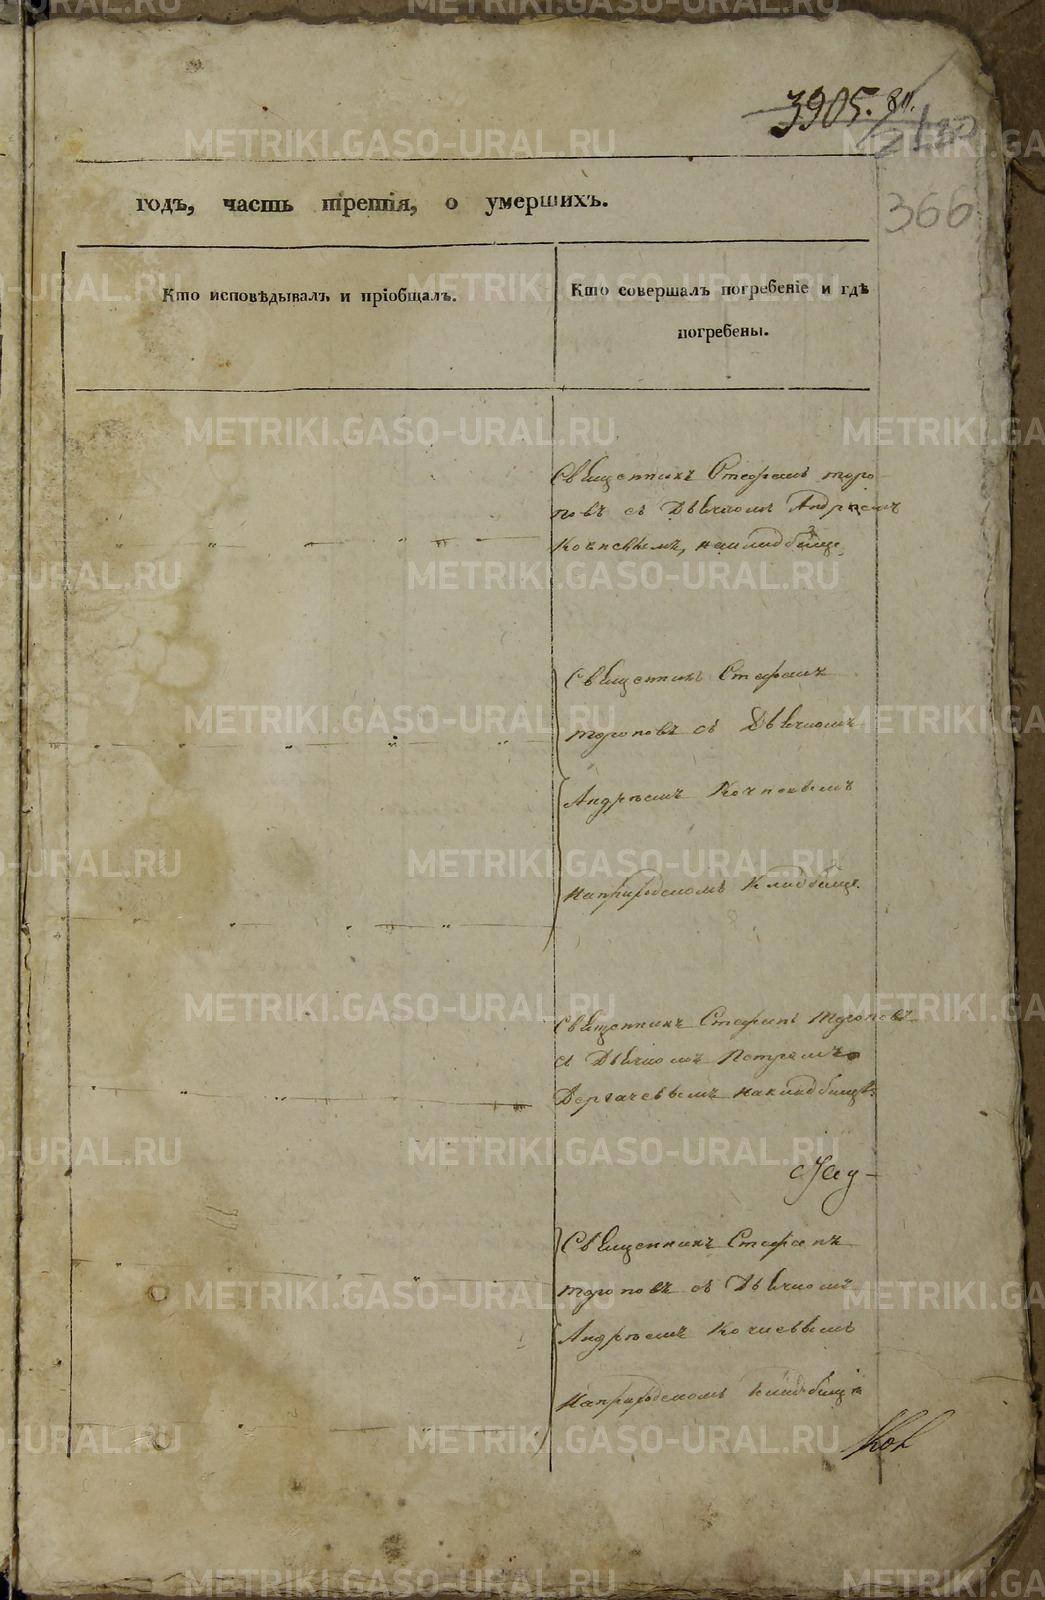 3905. 811.
366
годъ, часть третія, о умершихъ.
Кто исповѣдывалъ и пріобщалъ.
Кто совершалъ погребеніе и гдѣ
погребены.
Священникъ Стефанъ Торо-
повъ съ Дьячкомъ Андреемъ
на кладбище
Священникъ Стефанъ
Тороповъ съ Дьячкомъ
Андреемъ
на приходскомъ кладбище
Священникъ Стефанъ Тороповъ
съ Дьячкомъ Петромъ
Дергачевымъ на кладбищѣ
Священникъ Стефанъ
Тороповъ съ Дьячкомъ
Андреемъ
на приходскомъ кладбищѣ
METRIKI.GASO-URAL.RU